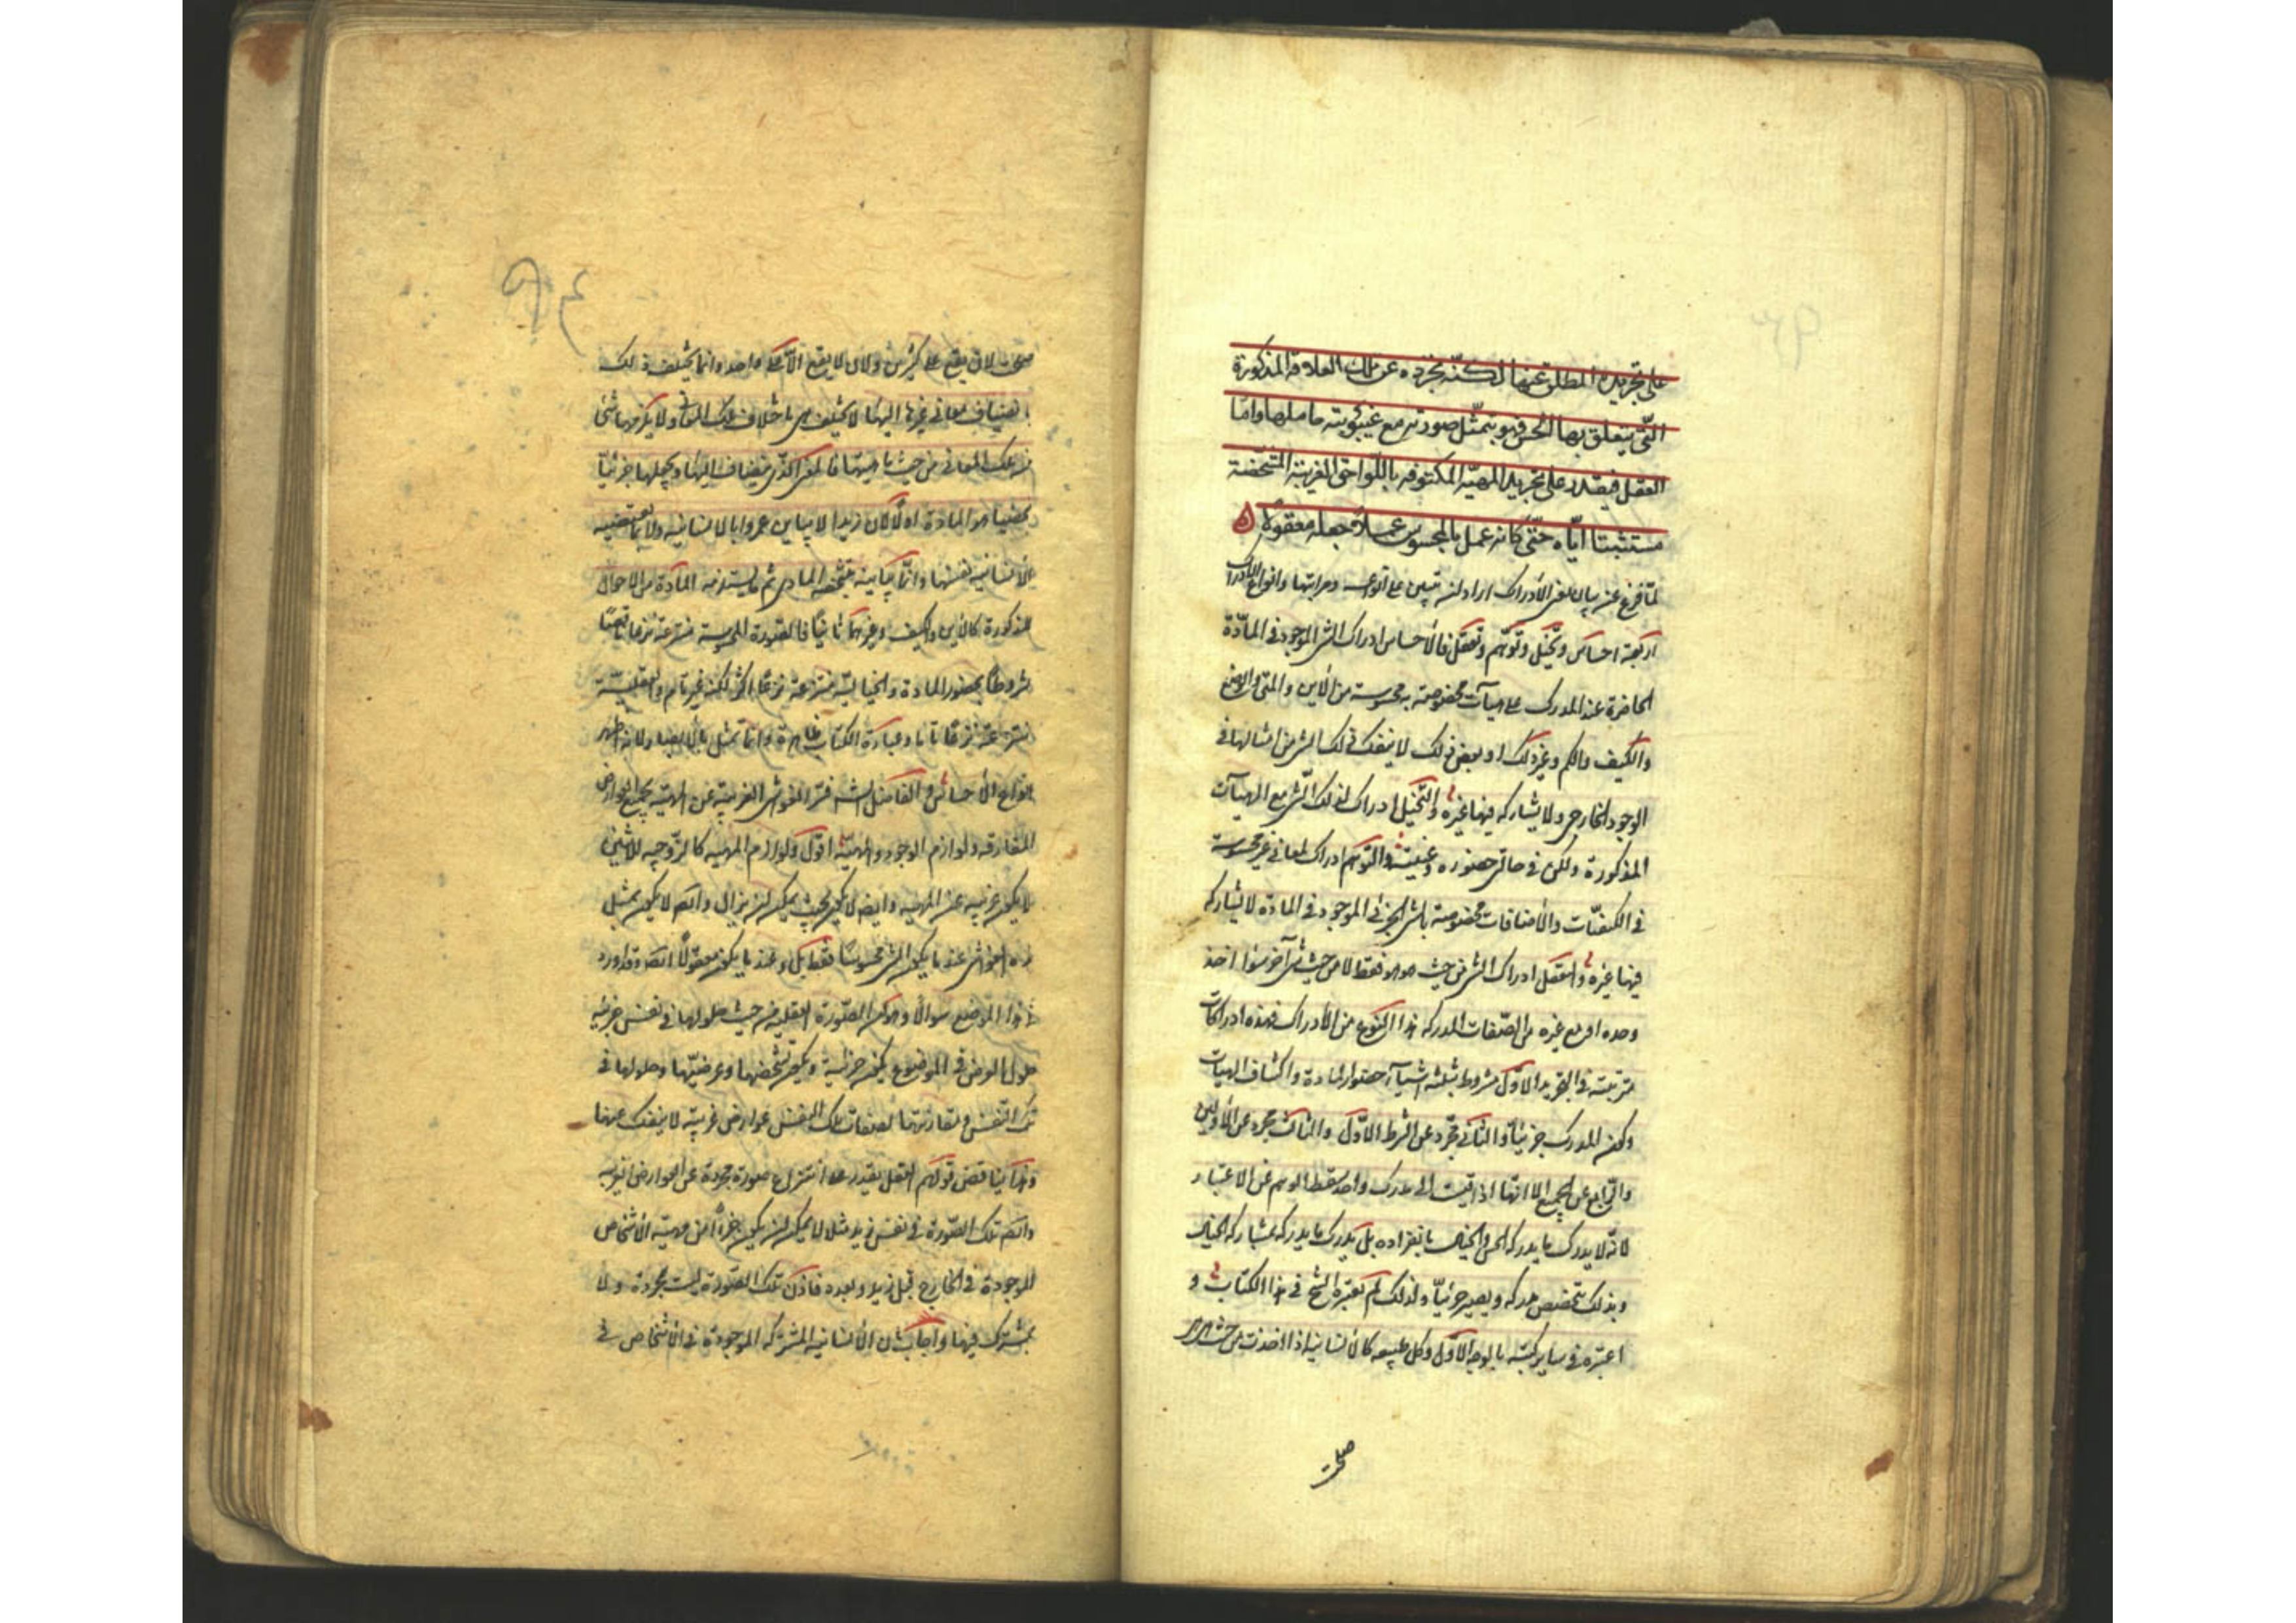 على تجريده المطلق عنها لكنه يجرده عن تلك العلاقة المذكورة
التي يتعلق بها الحس فهو يتمثل صورته مع غيبوبته حاملها واما
العقل فيقتدر على تجريد المهية المكنوفة باللواحق الغريبة المشخصة
مستثبتا اياه حتى كانه عمل بالمحسوس عملا جعله معقولا
لما فرغ عن بيان معنى الادراك اراد ان يبين على انواعه ومراتبها وانواع الادراك
اربعة احساس وتخيل وتوهم وتعقل فالاحساس ادراك الشئ الموجود فى المادة
الحاضرة عند المدرك على هيآت مخصوصة به محسوسة من الاين والمتى والوضع
والكيف والكم وغير ذلك او بعض ذلك لا ينفك ذلك الشئ من امثالها فى
الوجود الخارجى ولا يشاركه فيها غيره والتخيل ادراك لذلك الشئ مع الهيآت
المذكورة ولكن فى حالتى حضوره وغيبته والتوهم ادراك لمعانى غير محسوسة
من الكيفيات والاضافات مخصوصة بالشئ الجزئى الموجود فى المادة لا يشاركه
فيها غيره والتعقل ادراك الشئ من حيث هو هو فقط لا من حيث شئ آخر سواء اخذ
وحده او مع غيره من الصفات المدركة هذا النوع من الادراك فهذه ادراكات
مترتبة فى التجريد الاول مشروط بثلثة اشيآء حضور المادة واكتناف الهيآت
وكون المدرك جزئيا والثانى مجرد عن الشرط الاول والثالث مجرد عن الاولين
والرابع عن الجميع الا انها اذا قيست الى مدرك واحد سقط الوهم عن الاعتبار
لانه لا يدرك ما يدركه الحس والخيال بانفراده بل يدرك ما يدركه بمشاركة الخيال
وبذلك يتخصص مدركه ويصير جزئيا ولذلك لم يعتبره الشيخ فى هذا الكتاب و
اعتبره فى ساير كتبه بالوجه الاول وكل طبيعة كالانسانية اذا اخذت من حيث هى هى
صلحت
صلحت لان يقع على كثيرين ولان لا يقع الا على واحد وانما يختلف ذلك
بانضياف معانى غيرها اليها لا يختلف هى باختلاف تلك المعانى ولا يكون منها شئ
من تلك المعانى من حيث ماهيتها فالمعنى الذى ينضاف اليها ويجعلها جزئيا
بعضها هو المادة اولا لان زيدا لا يباين عمروا بالانسانية ولا بما تقتضيه
الانسانية نفسها وانما يباينه بتشخصه المادى ثم ما يستلزمه المادة من الاحوال
المذكورة كالاين والكيف وغيرهما ثانيا فالصورة المحسوسة منتزعة نزعا ناقصا
مشروطا بحضور المادة والخيالية منتزعة نزعا اكثر لكنه غير تام والعقلية
منتزعة نزعا تاما وعبارة الكتاب ظاهرة وانما تمثل بالابصار لانه اظهر
انواع الاحساس والفاضل الشارح فسر الغواشى الغريبة عن المهية بجميع العوارض
المفارقة ولوازم الوجود والمهية اقول ولوازم المهية كالزوجية للاثنين
لا يكون غريبة عن المهية وايضا لا يكون بحيث يمكن ان يزال وايضا لا يكون بمثل
هذه الغواشى عند ما يكون الشئ محسوسا فقط بل وعند ما يكون معقولا ايضا وقد اورد
فى هذا الموضع سوالا وهو ان الصورة العقلية من حيث حلولها فى نفس جزئية
حلول العرض فى الموضوع يكون جزئية ويكون تشخصها وعرضيتها وحلولها فى
تلك النفس ومقارنتها لصفات تلك النفس عوارض غريبة لا ينفك عنها
وهذا يناقض قولهم العقل يقدر على انتزاع صورة مجردة عن العوارض الغريبة
وايضا تلك الصورة فى نفس زيد مثلا لا يمكن ان يكون جزءا من مهية الاشخاص
الموجودة فى الخارج قبل زيد وبعده فاذن تلك الصورة ليست مجردة ولا
بمشترك فيها واجاب بان الانسانية المشتركة الموجودة فى الاشخاص فى